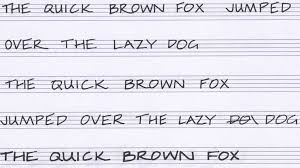 THE QUICK BROWN FOX JUMPED
OVER THE LAZY DOG
THE QUICK BROWN FOX
JUMPED OVER THE LAZY DOG
THE QUICK BROWN FOX